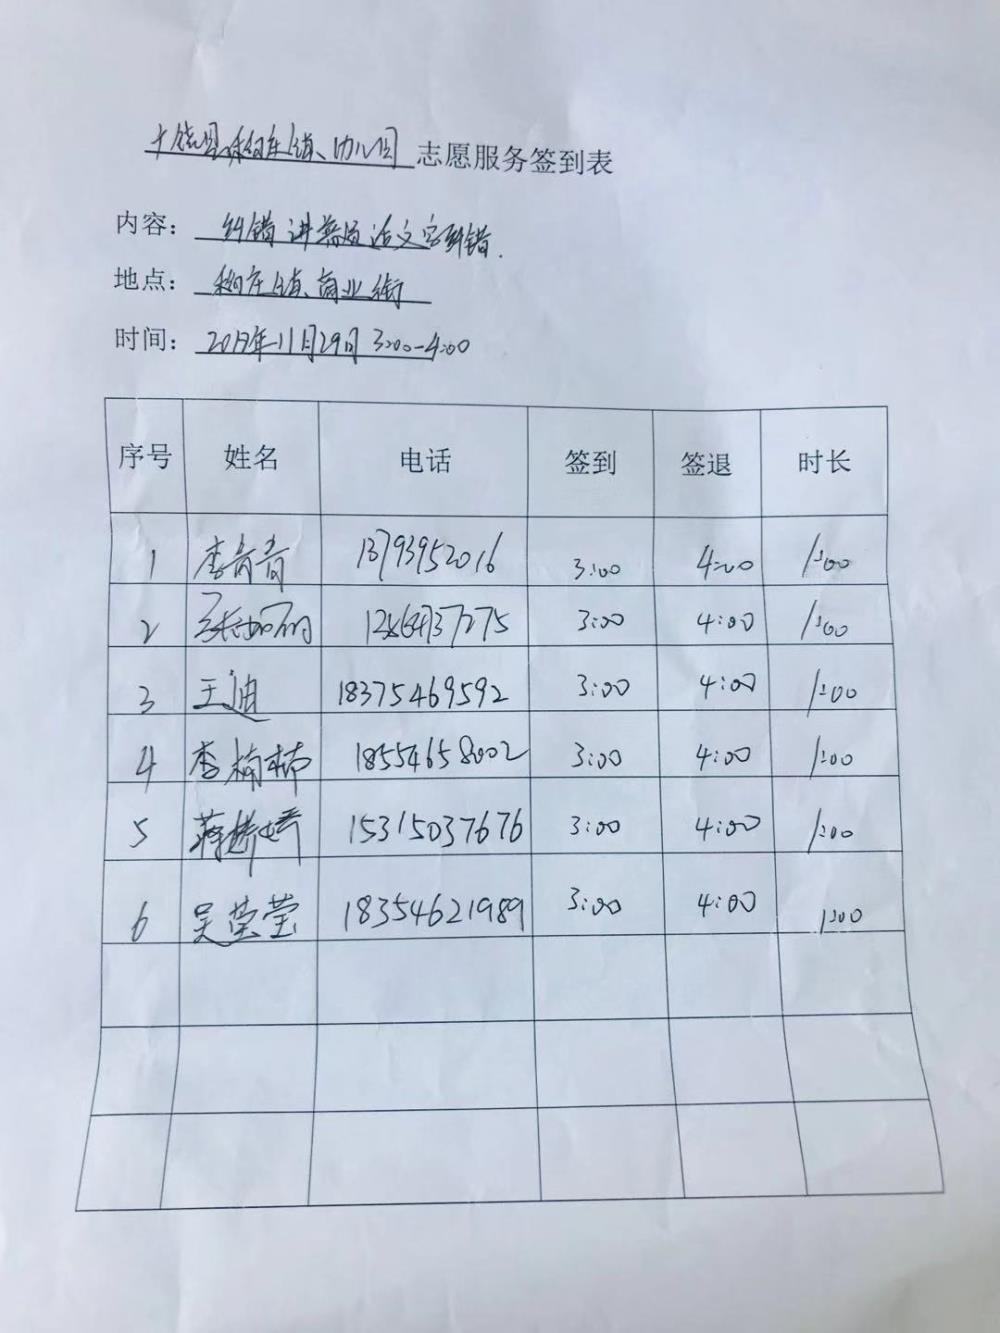 广饶县稻庄镇幼儿园 志愿服务签到表
内容： 纠错讲普通话文字纠错.
地点： 稻庄镇商业街
时间： 2019年11月29日 3:00-4:00
序号 姓名 电话 签到 签退 时长
1 李青青 13793952016 3:00 4:00 1:00
2 3:00 4:00 1:00
3 王迪 18375469592 3:00 4:00 1:00
4 李楠楠 18554658002 3:00 4:00 1:00
5 蒋 15315037676 3:00 4:00 1:00
6 吴莹莹 18354621989 3:00 4:00 1:00